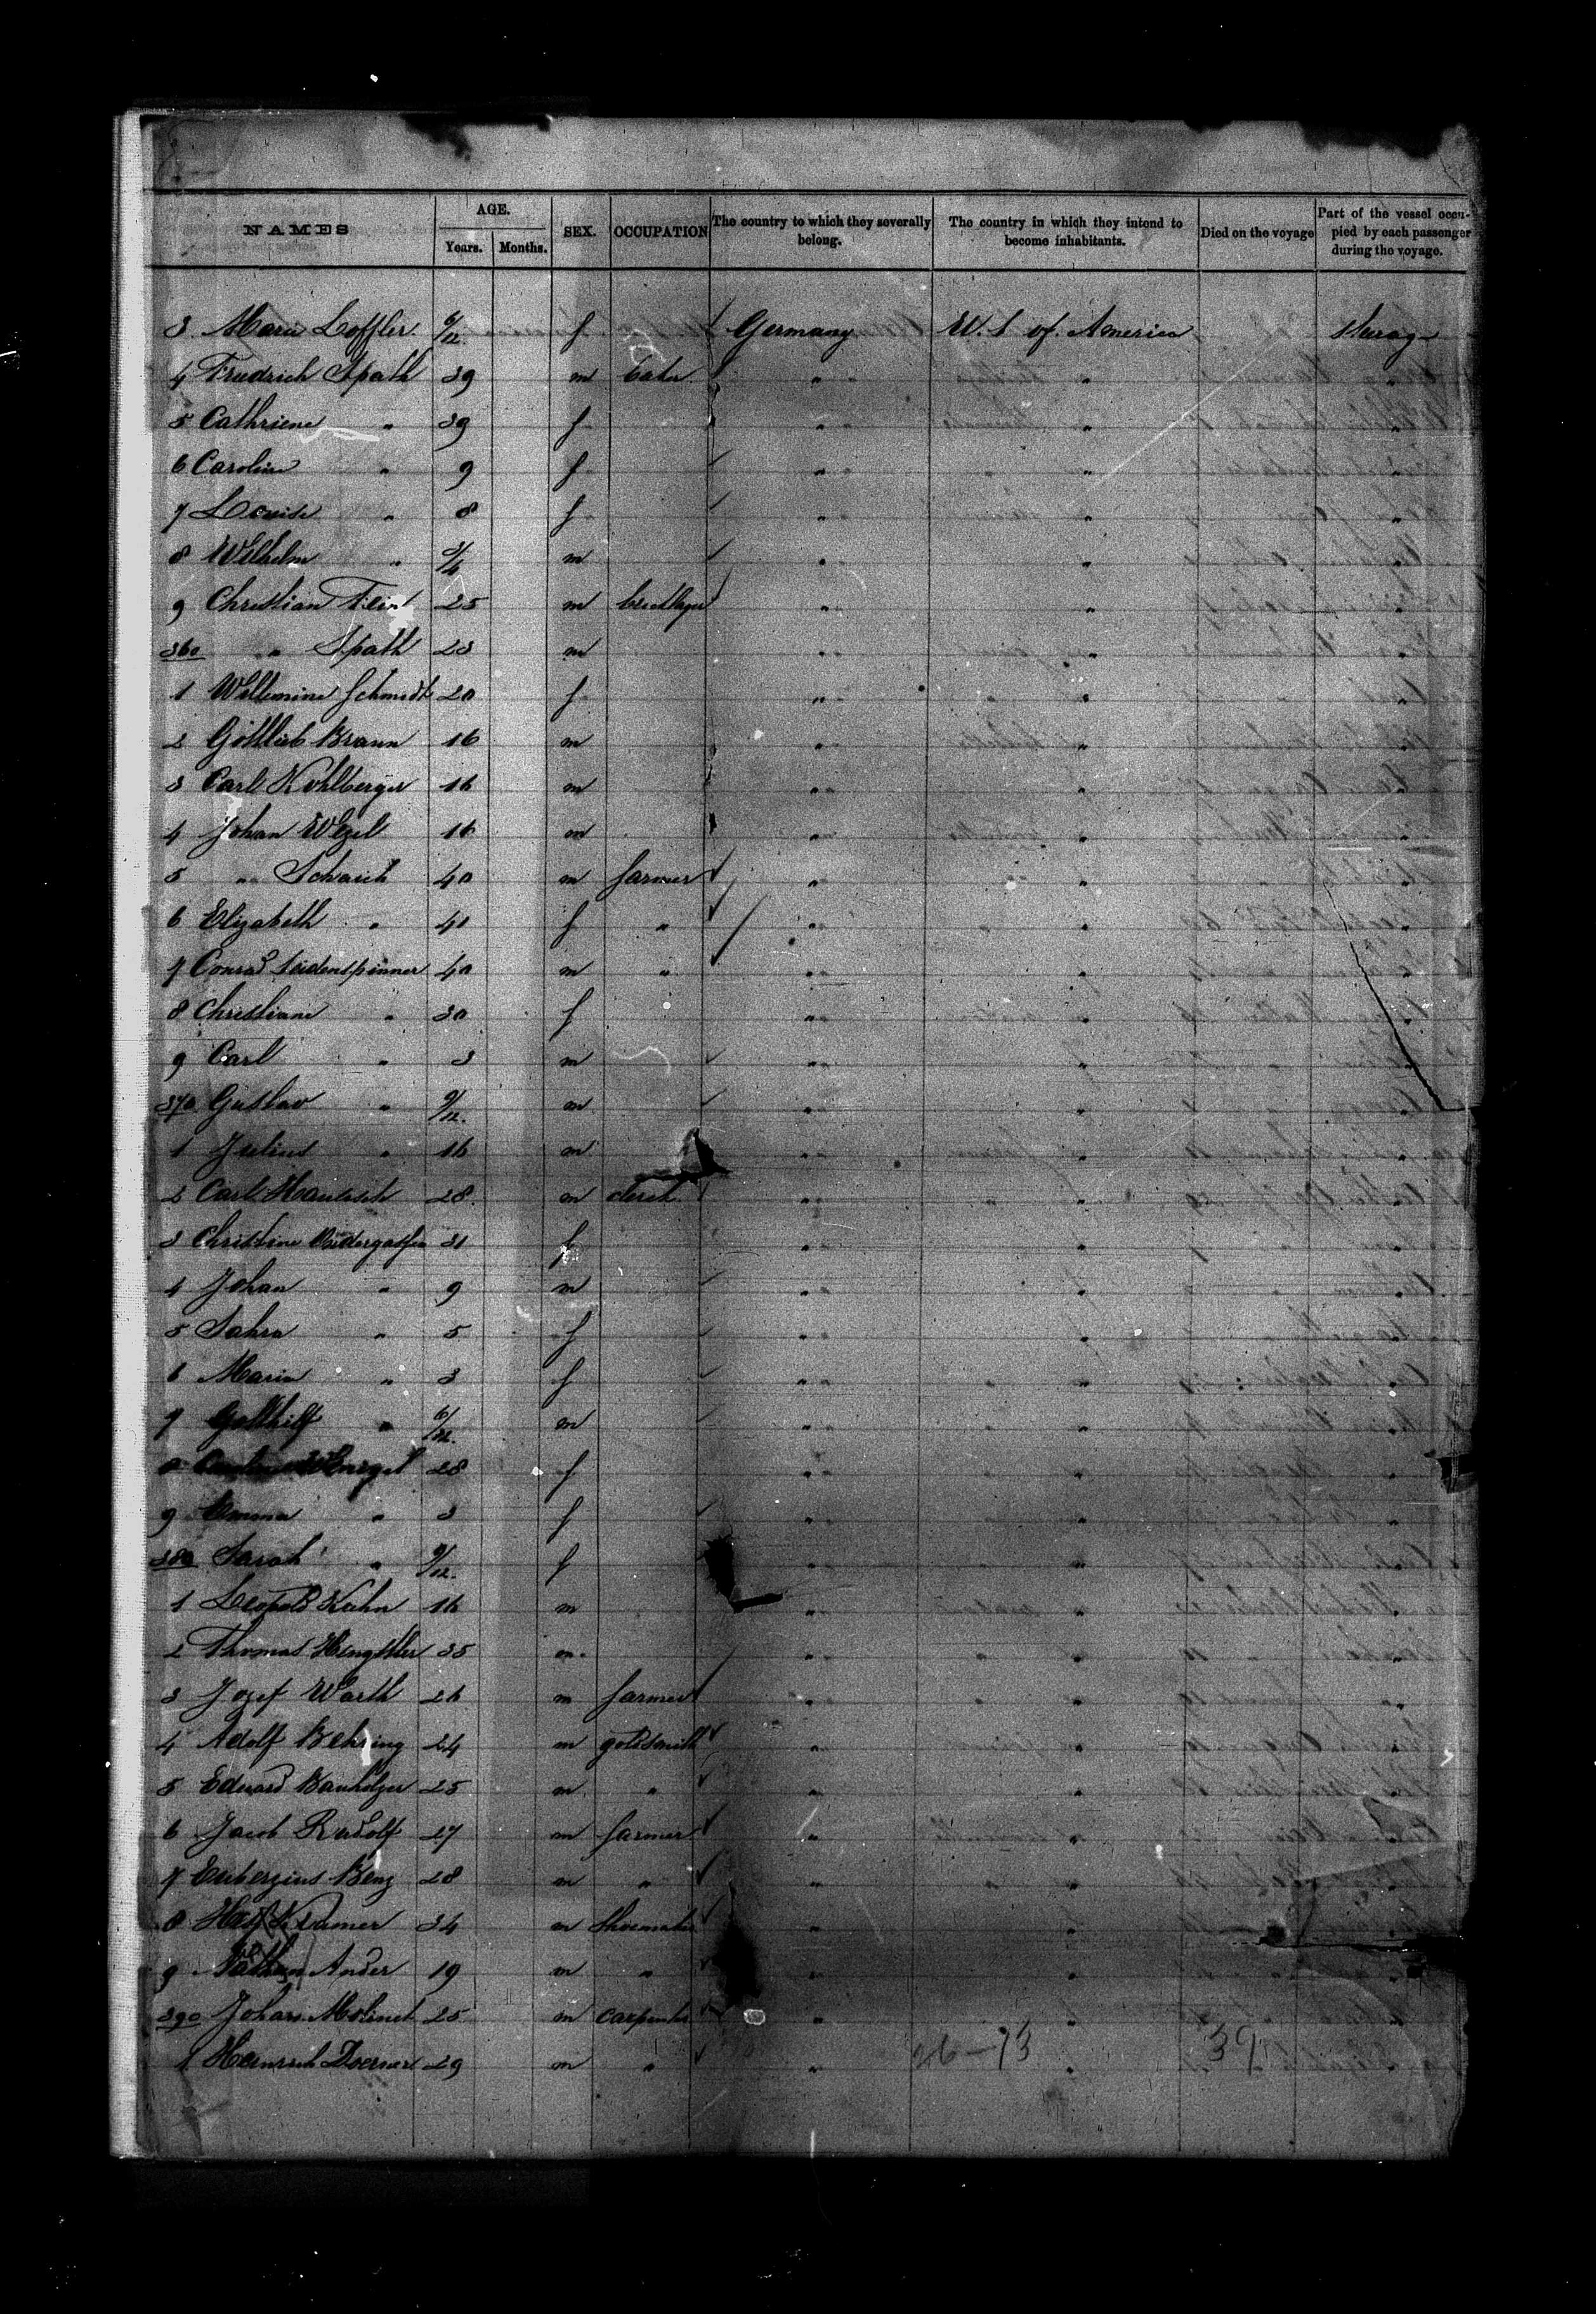 NAMES AGE. Years. Months. SEX. OCCUPATION The country to which they severally belong. The country in which they intend to become inhabitants. Died on the voyage Part of the vessel occupied by each passenger during the voyage.
3 Marie Loffler 6/12 f Germany U. S of America
4 Friedrich Spath 39 m " "
5 Cathriene " 39 f " "
6 Caroline " 9 f " "
7 Louise " 8 f " "
8 Wilhelm " 3/4 m " "
9 Christian 25 m " "
360 " Spath 23 m " "
1 Willemine Schmidt 20 f " "
2 Gottlieb Braun 16 m " "
3 Carl Kohlberger 16 m " "
4 Johan Wezel 16 m " "
5 " Schaich 40 m farmer " "
6 Elizabeth " 41 f " " "
7 Conrad Seidenspinner 40 m " " "
8 Christiane " 30 f " "
9 Carl " 3 m " "
370 Gustav " 9/12. m " "
1 Julius " 16 m " "
2 Carl 28 m clerck " "
3 Christine 31 f " "
4 Johan " 9 m " "
5 Sahra " 5 f " "
6 Maria " 3 f " "
7 Gotthilf " 6/12. m " "
8 28 f " "
9 Emma " 3 f " "
380 Sarah " 9/12. f " "
1 Leopold Kahn 16 m " "
2 Thomas Hengstler 35 m " "
3 Jozef Warth 26 m farmer " "
4 Adolf Behring 24 m goldsmith " "
5 Eduard Banholzer 25 m " " "
6 Jacob Rudolf 27 m farmer " "
7 Benz 28 m " " "
8 Kramer 34 m Shoemaker " "
9 Ander 19 m " " "
390 Johan Molinet 25 m carpenter " "
1 Heinrich Doerner 29 m " " 26-13 " 39